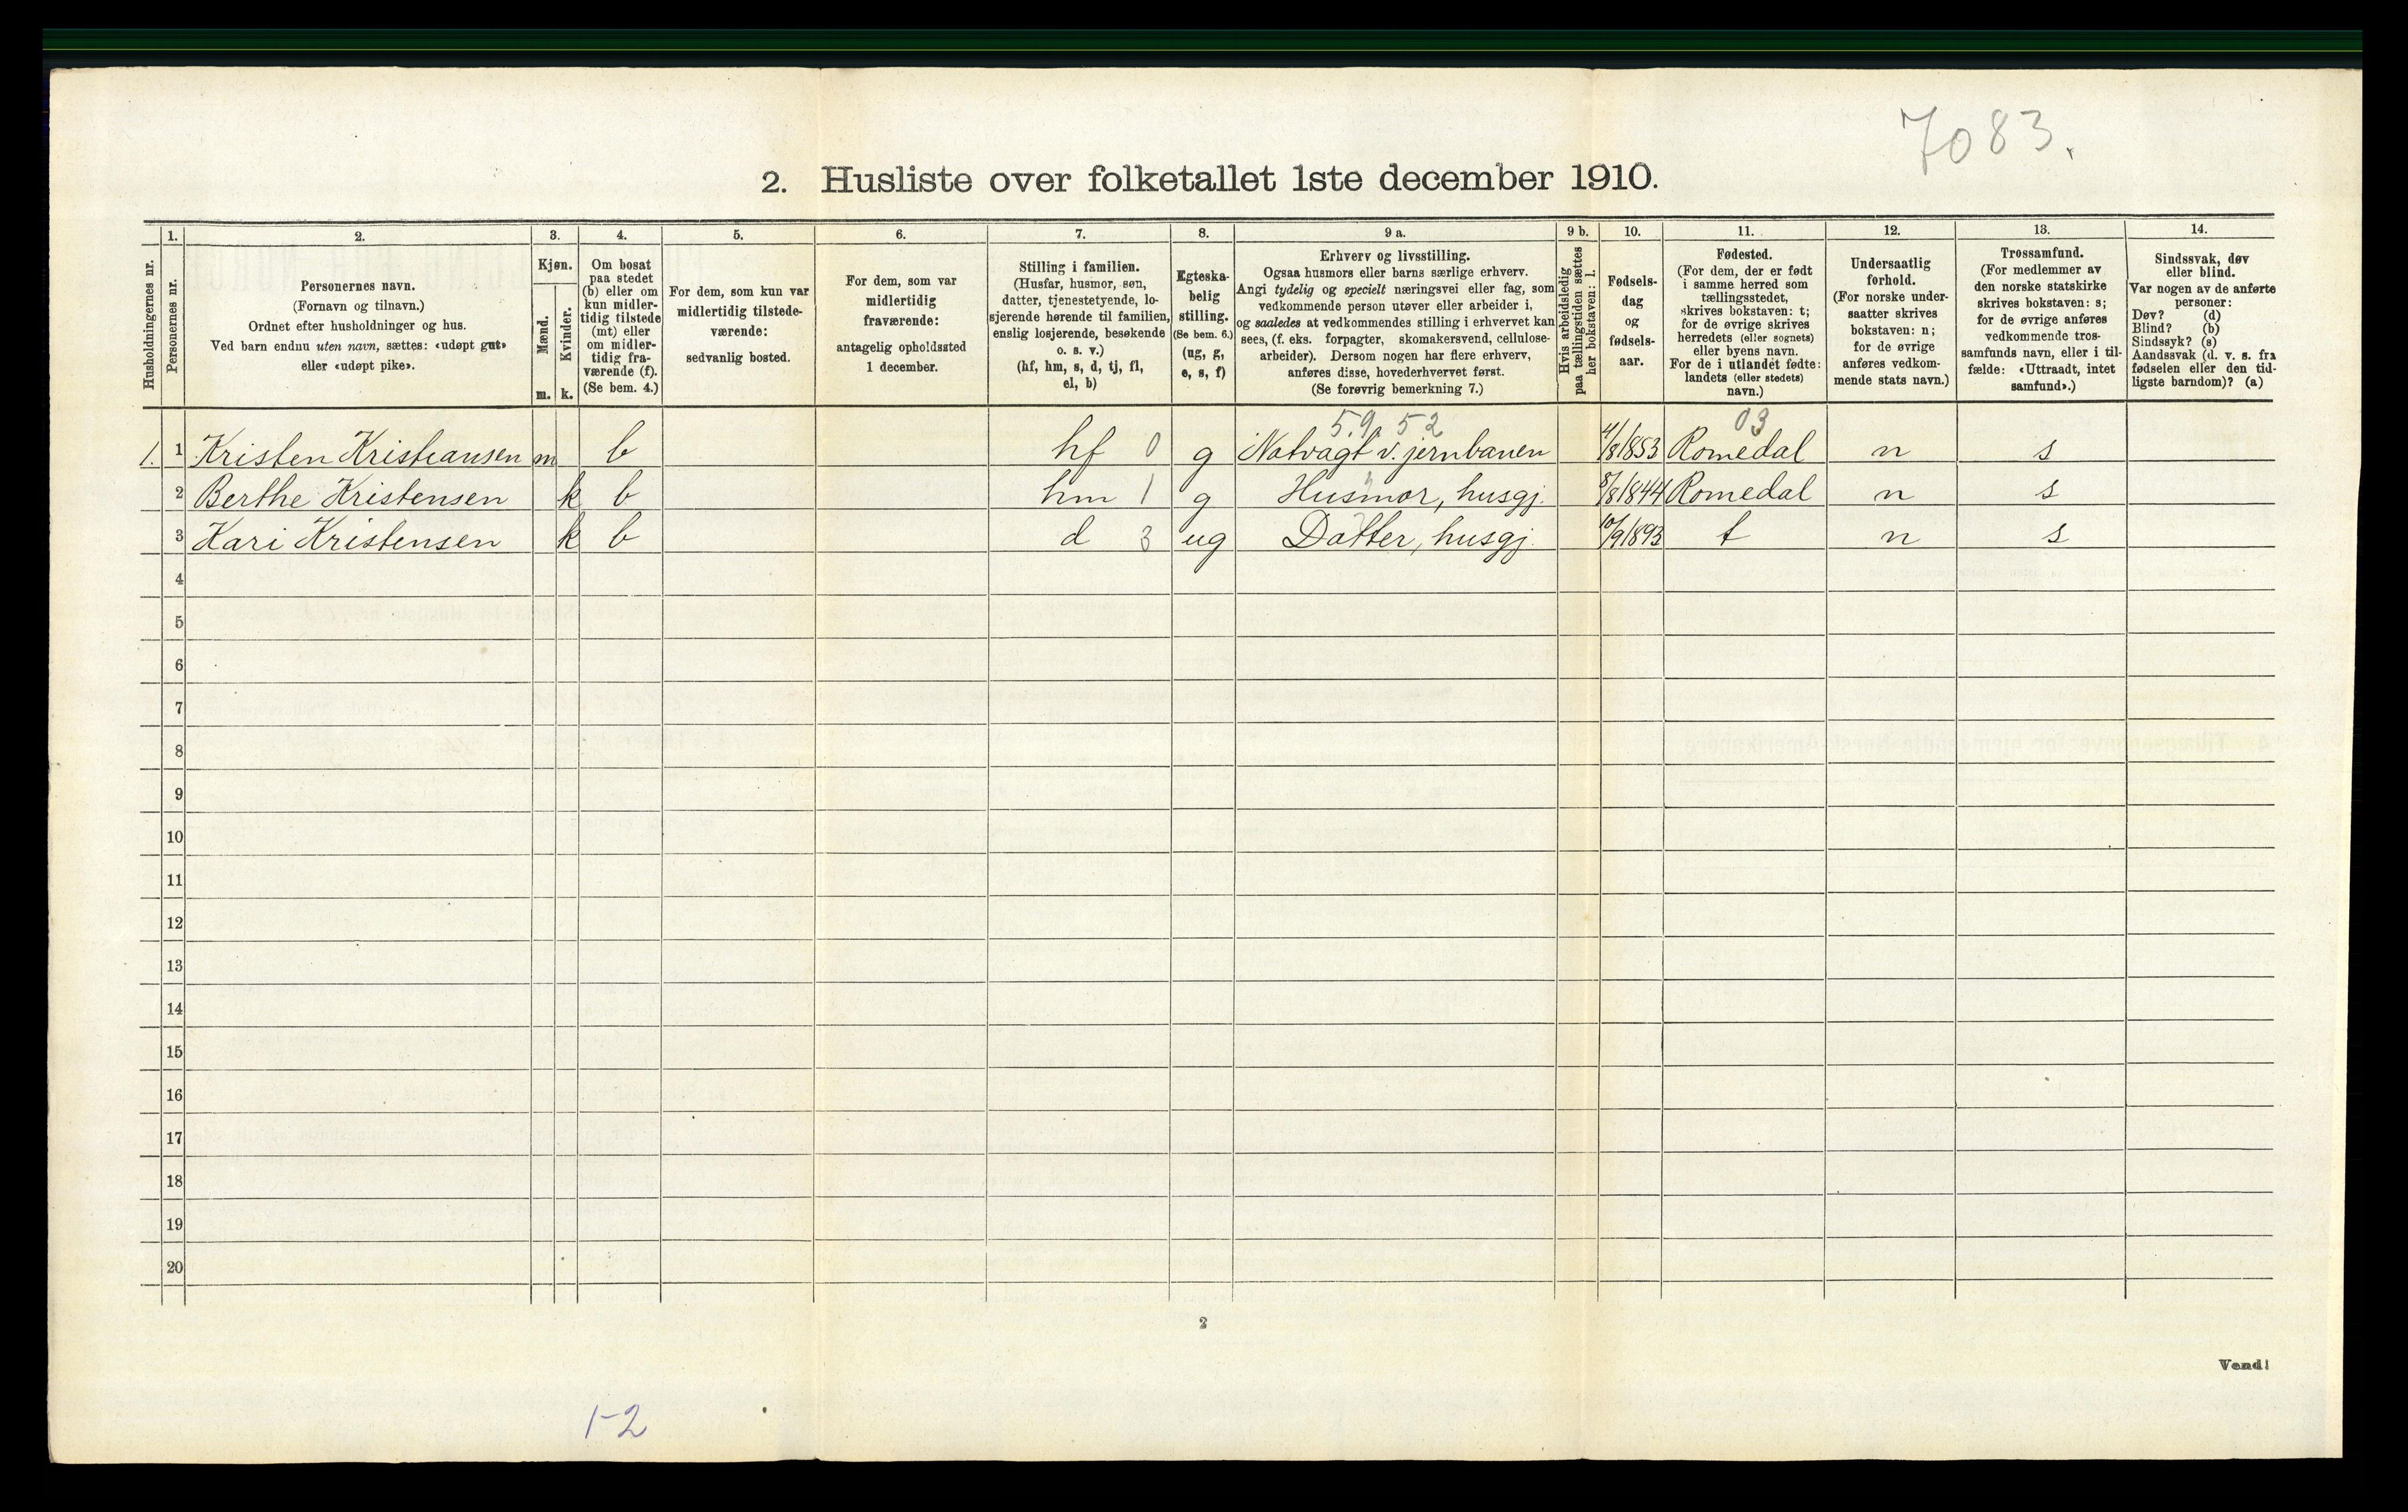 7083.
2. Husliste over folketallet 1ste december 1910.
Husholdningernes nr.
1.
Personernes nr.
2.
Personernes navn.
(Fornavn og tilnavn.)
Ordnet efter husholdninger og hus.
Ved barn endnu uten navn, sættes: «udøpt gut»
eller «udøpt pike».
3.
Kjøn.
Mænd.
Kvinder.
m. k.
4.
Om bosat
paa stedet
(b) eller om
kun midler-
tidig tilstede
(mt) eller
om midler-
tidig fra-
værende (f).
(Se bem. 4.)
5.
For dem, som kun var
midlertidig tilstede-
værende:
sedvanlig bosted.
6.
For dem, som var
midlertidig
fraværende:
antagelig opholdssted
1 december.
7.
Stilling i familien.
(Husfar, husmor, søn,
datter, tjenestetyende, lo-
sjerende hørende til familien,
enslig losjerende, besøkende
o. s. v.)
(hf, hm, s, d, tj, fl,
el, b)
8.
Egteska-
belig
stilling.
(Se bem. 6.)
(ug, g,
e, s, f)
9 a.
Erhverv og livsstilling.
Ogsaa husmors eller barns særlige erhverv.
Angi tydelig og specielt næringsvei eller fag, som
vedkommende person utøver eller arbeider i,
og saaledes at vedkommendes stilling i erhvervet kan
sees, (f. eks. forpagter, skomakersvend, cellulose-
arbeider). Dersom nogen har flere erhverv,
anføres disse, hovederhvervet først.
(Se forøvrig bemerkning 7.)
9 b.
Hvis arbeidsledig
paa tællingstiden sættes
her bokstaven: l.
10.
Fødsels-
dag
og
fødsels-
aar.
11.
Fødested.
(For dem, der er født
i samme herred som
tællingsstedet,
skrives bokstaven: t;
for de øvrige skrives
herredets (eller sognets)
eller byens navn.
For de i utlandet fødte:
landets (eller stedets)
navn.)
12.
Undersaatlig
forhold.
(For norske under-
saatter skrives
bokstaven: n;
for de øvrige
anføres vedkom-
mende stats navn.)
13.
Trossamfund.
(For medlemmer av
den norske statskirke
skrives bokstaven: s;
for de øvrige anføres
vedkommende tros-
samfunds navn, eller i til-
fælde: «Uttraadt, intet
samfund».)
14.
Sindssvak, døv
eller blind.
Var nogen av de anførte
personer:
Døv? (d)
Blind? (b)
Sindssyk? (s)
Aandssvak (d. v. s. fra
fødselen eller den tid-
ligste barndom)? (a)
5.9. 52 03
1. 1 Kristen Kristiansen m b hf 0 g Natvagt v. jernbanen 4/8 1853 Romedal n s
2 Berthe Kristensen k b hm 1 g Husmor, husgj. 8/8 1844 Romedal n s
3 Kari Kristensen k b d 3 ug Datter, husgj. 10/9 1893 t n s
4
5
6
7
8
9
10
11
12
13
14
15
16
17
18
19
20
2
Vend!
1-2